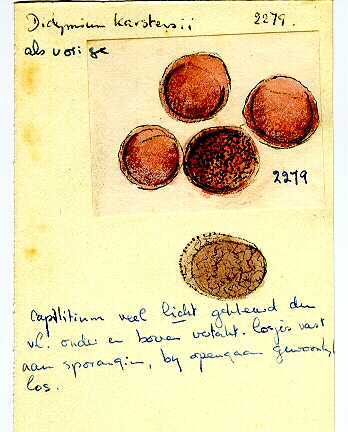 Didymium Karstensii 2279.
als vorige
2279
Capillitium veel licht gekleurd dun
vl. onder en boven vertakt. losjes vast
aan sporangiën, by opengaan gewoonlijk
los.